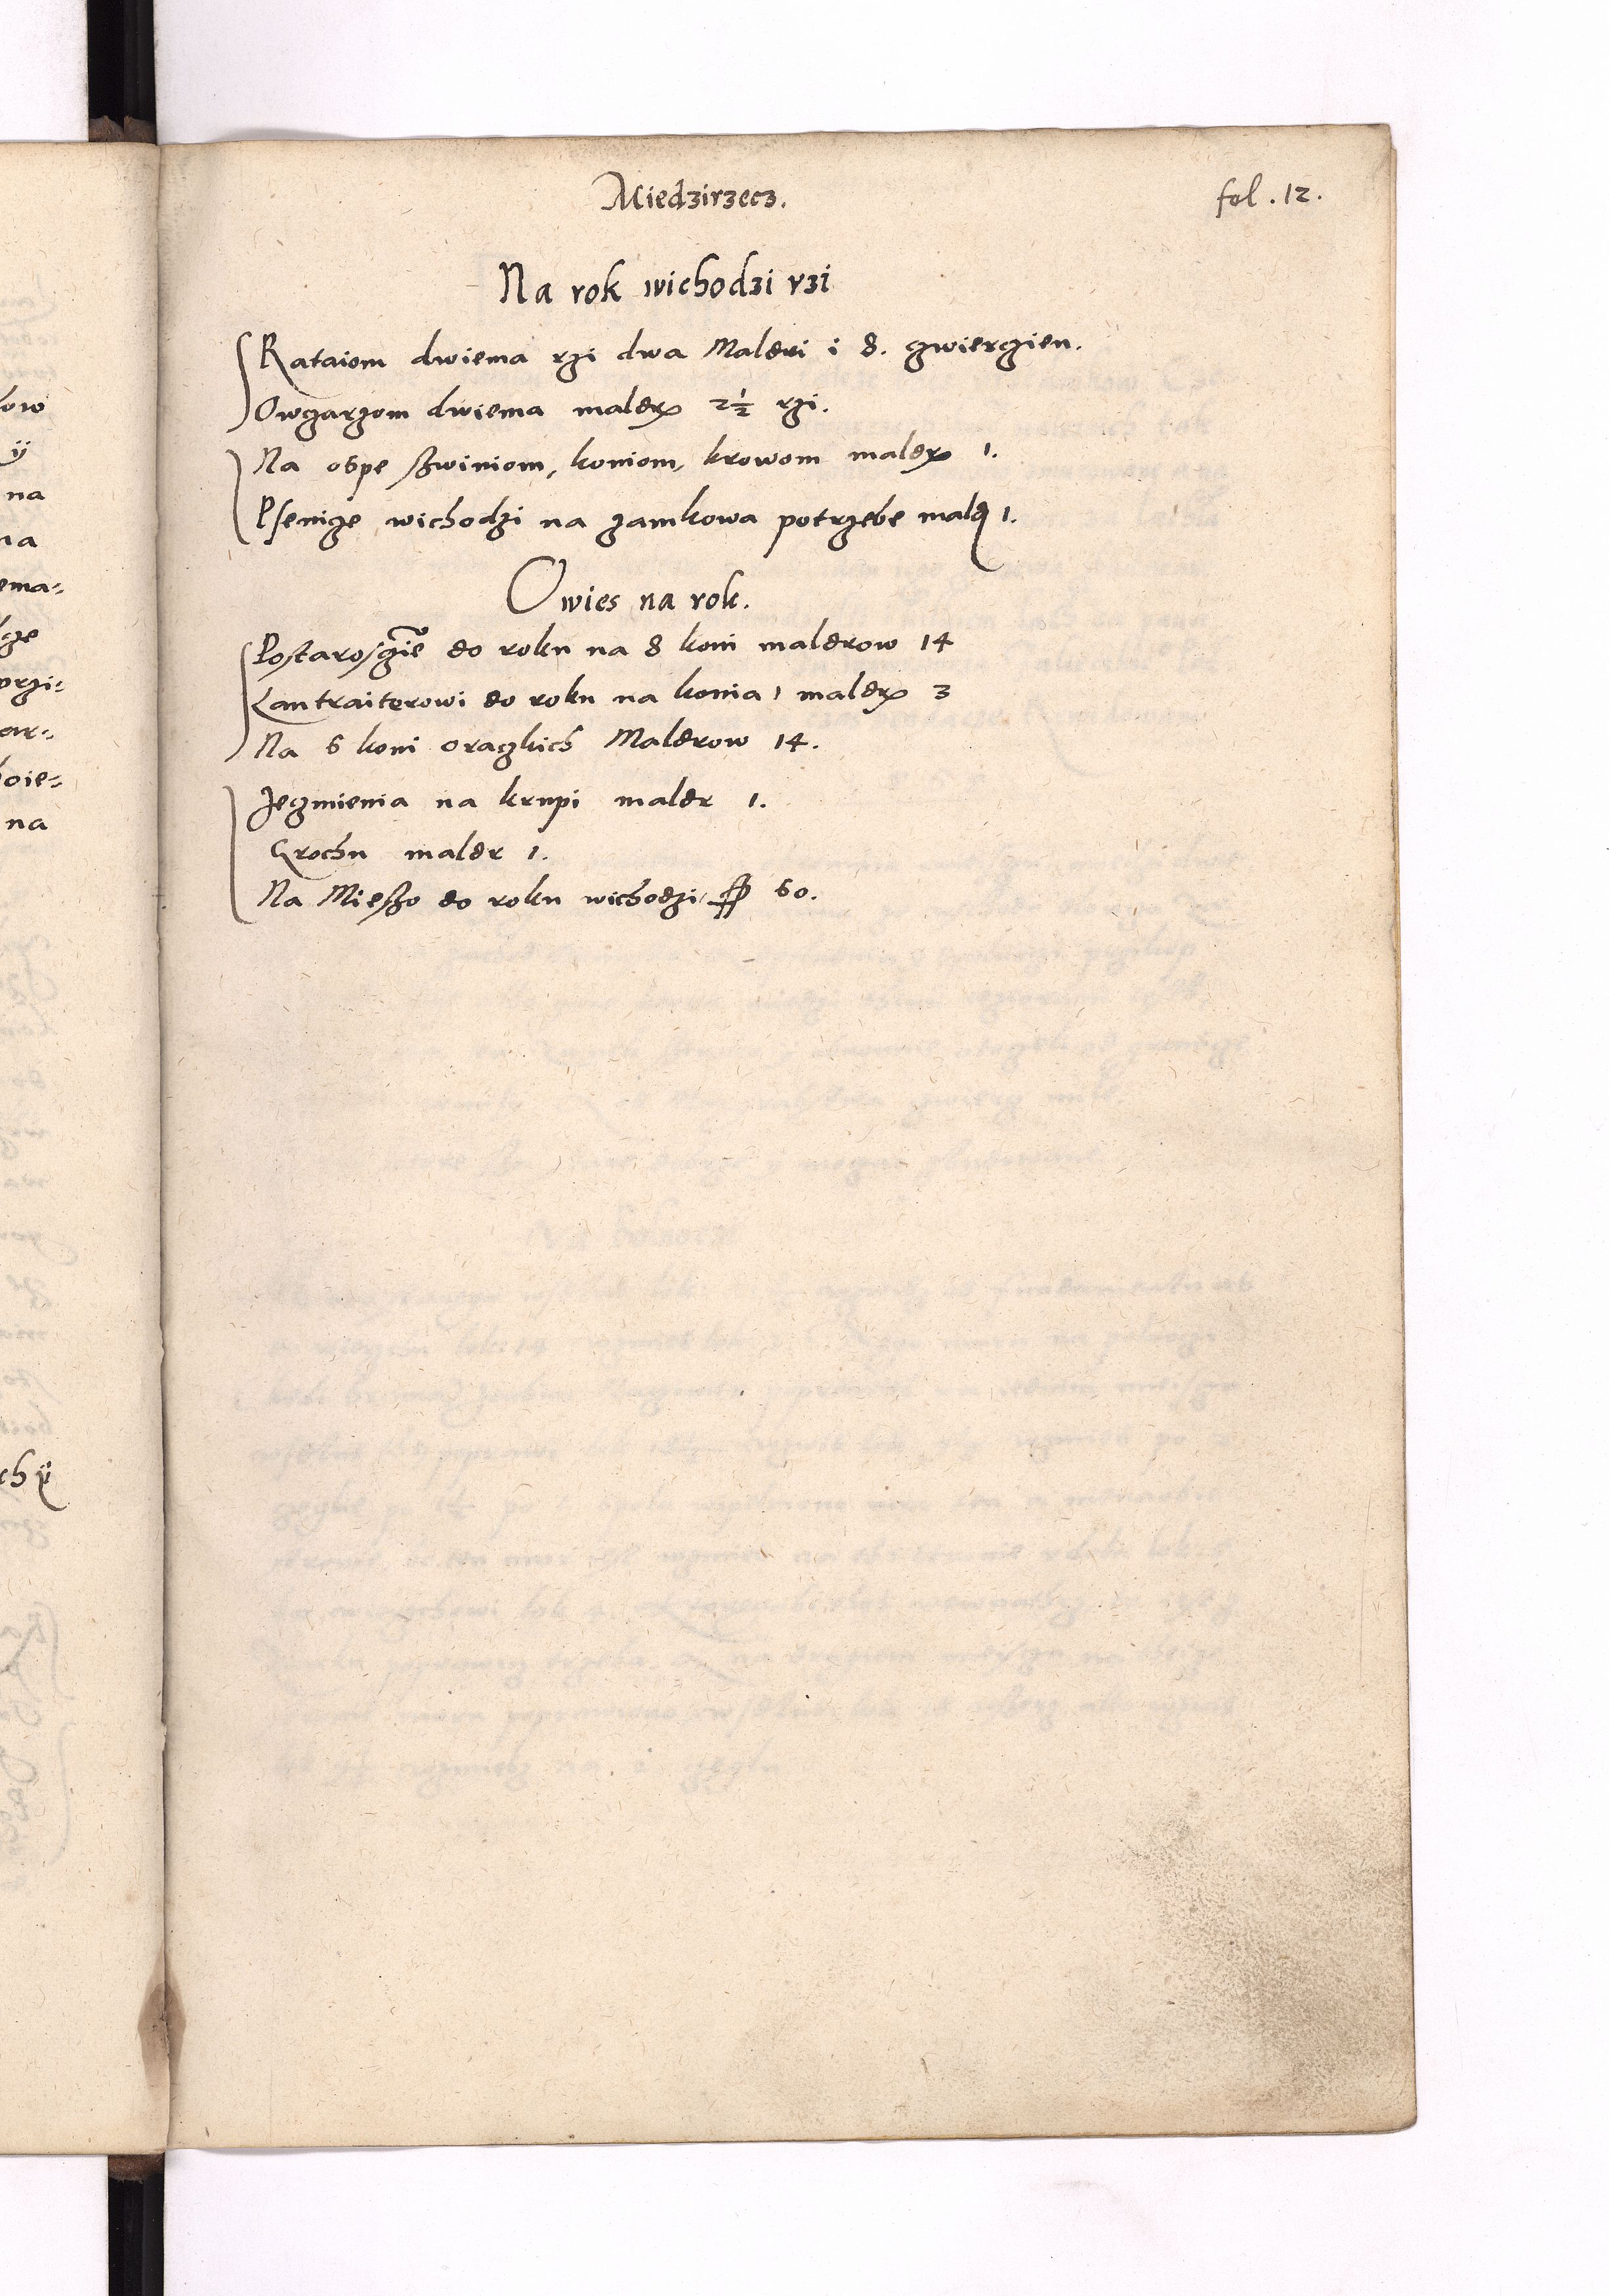 Miedzirzecz.
fol. 12.
Na rok wichodzi rzi
Rataiom dwiema rzi dwa Maldri i 8. czwierczien.
Owczarzom dwiema maldr 2½ rzi.
Na ospe swiniom, koniom, krowom maldr 1.
Psenicze wichodzi na zamkowa potrzebe maldr 1.
Owies na rok.
Postaroscie do roku na 8 koni maldrow 14
Lantraiterowi do roku na konia 1 maldr 3
Na 6 koni oraczkich Maldrow 14.
Jeczmienia na krupi maldr 1.
Grochu maldr 1.
Na Mieso do roku wichodzi 60.
ow
ij
na
na
ema-
cze
przi-
ar-
oie-
na